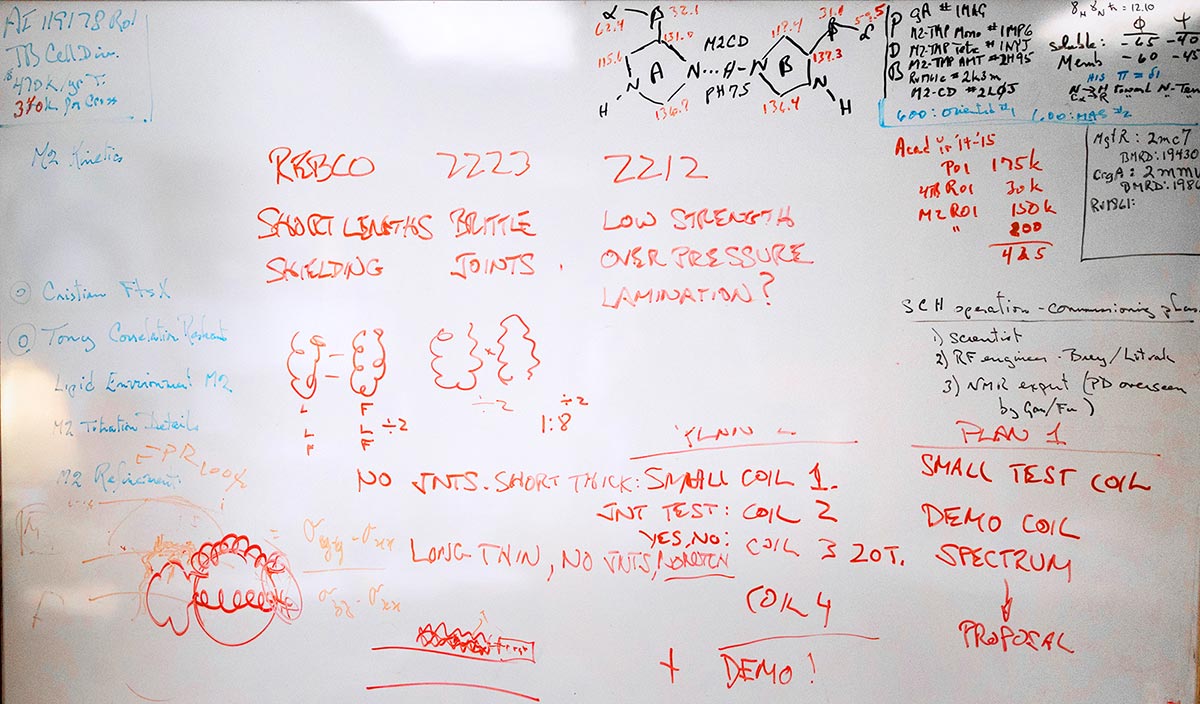 AI 119178 Ro1
TB Cell Div.
470k/yr T.
370k for Cross
M2 Kinetics
Cristian FtsX
Tony Correlation Restraint
Lipid Environment M2
M2 Titration Details
M2 Refinement
EPR
100%
α
β
32.1
62.4
131.0
115.6
A
N
H
136.7
M2CD
N···H-N
PH75
117.4
31.0
β
59.5
α
137.3
B
N
H
136.4
P
D
B
gA # 1MAG
M2-TMP Mono # 1MP6
M2-TMP Tetr # 1NYJ
M2-TMP AMT # 2H95
Rv1761c # 2k3m
M2-CD # 2L0J
= 12.10
φ
Soluble: -65 -40
Memb -60 -45
His π = δ1
N→H toward N-Term
600: Oriented #1 600: MAS #2
Acad yr '14-'15
P01 175k
4TB R01 30k
M2 R01 150k
" 200
425
MgtR: 2mc7
BMRD: 19430
CrgA: 2mmu
BMRD: 1986
Rv1861:
REBCO 2223 2212
SHORT LENGTHS BRITTLE LOW STRENGTH
SHIELDING JOINTS. OVER PRESSURE
LAMINATION?
L F
L L ÷2
F F
÷2 ÷2
1:8
SCH operation - commissioning phase
1) Scientist
2) RF engineer - Brey/Litvak
3) NMR expert (PD overseen
by Gan/Fu)
PLAN 1
SMALL TEST COIL
DEMO COIL
SPECTRUM
PROPOSAL
NO JNTS. SHORT THICK: SMALL COIL 1.
JNT TEST: COIL 2
YES, NO:
LONG THIN, NO JNTS, COIL 3 20T.
COIL 4
+ DEMO!